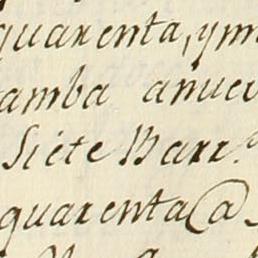 quarenta, y
amba anue
Siete Barr.
quarenta @